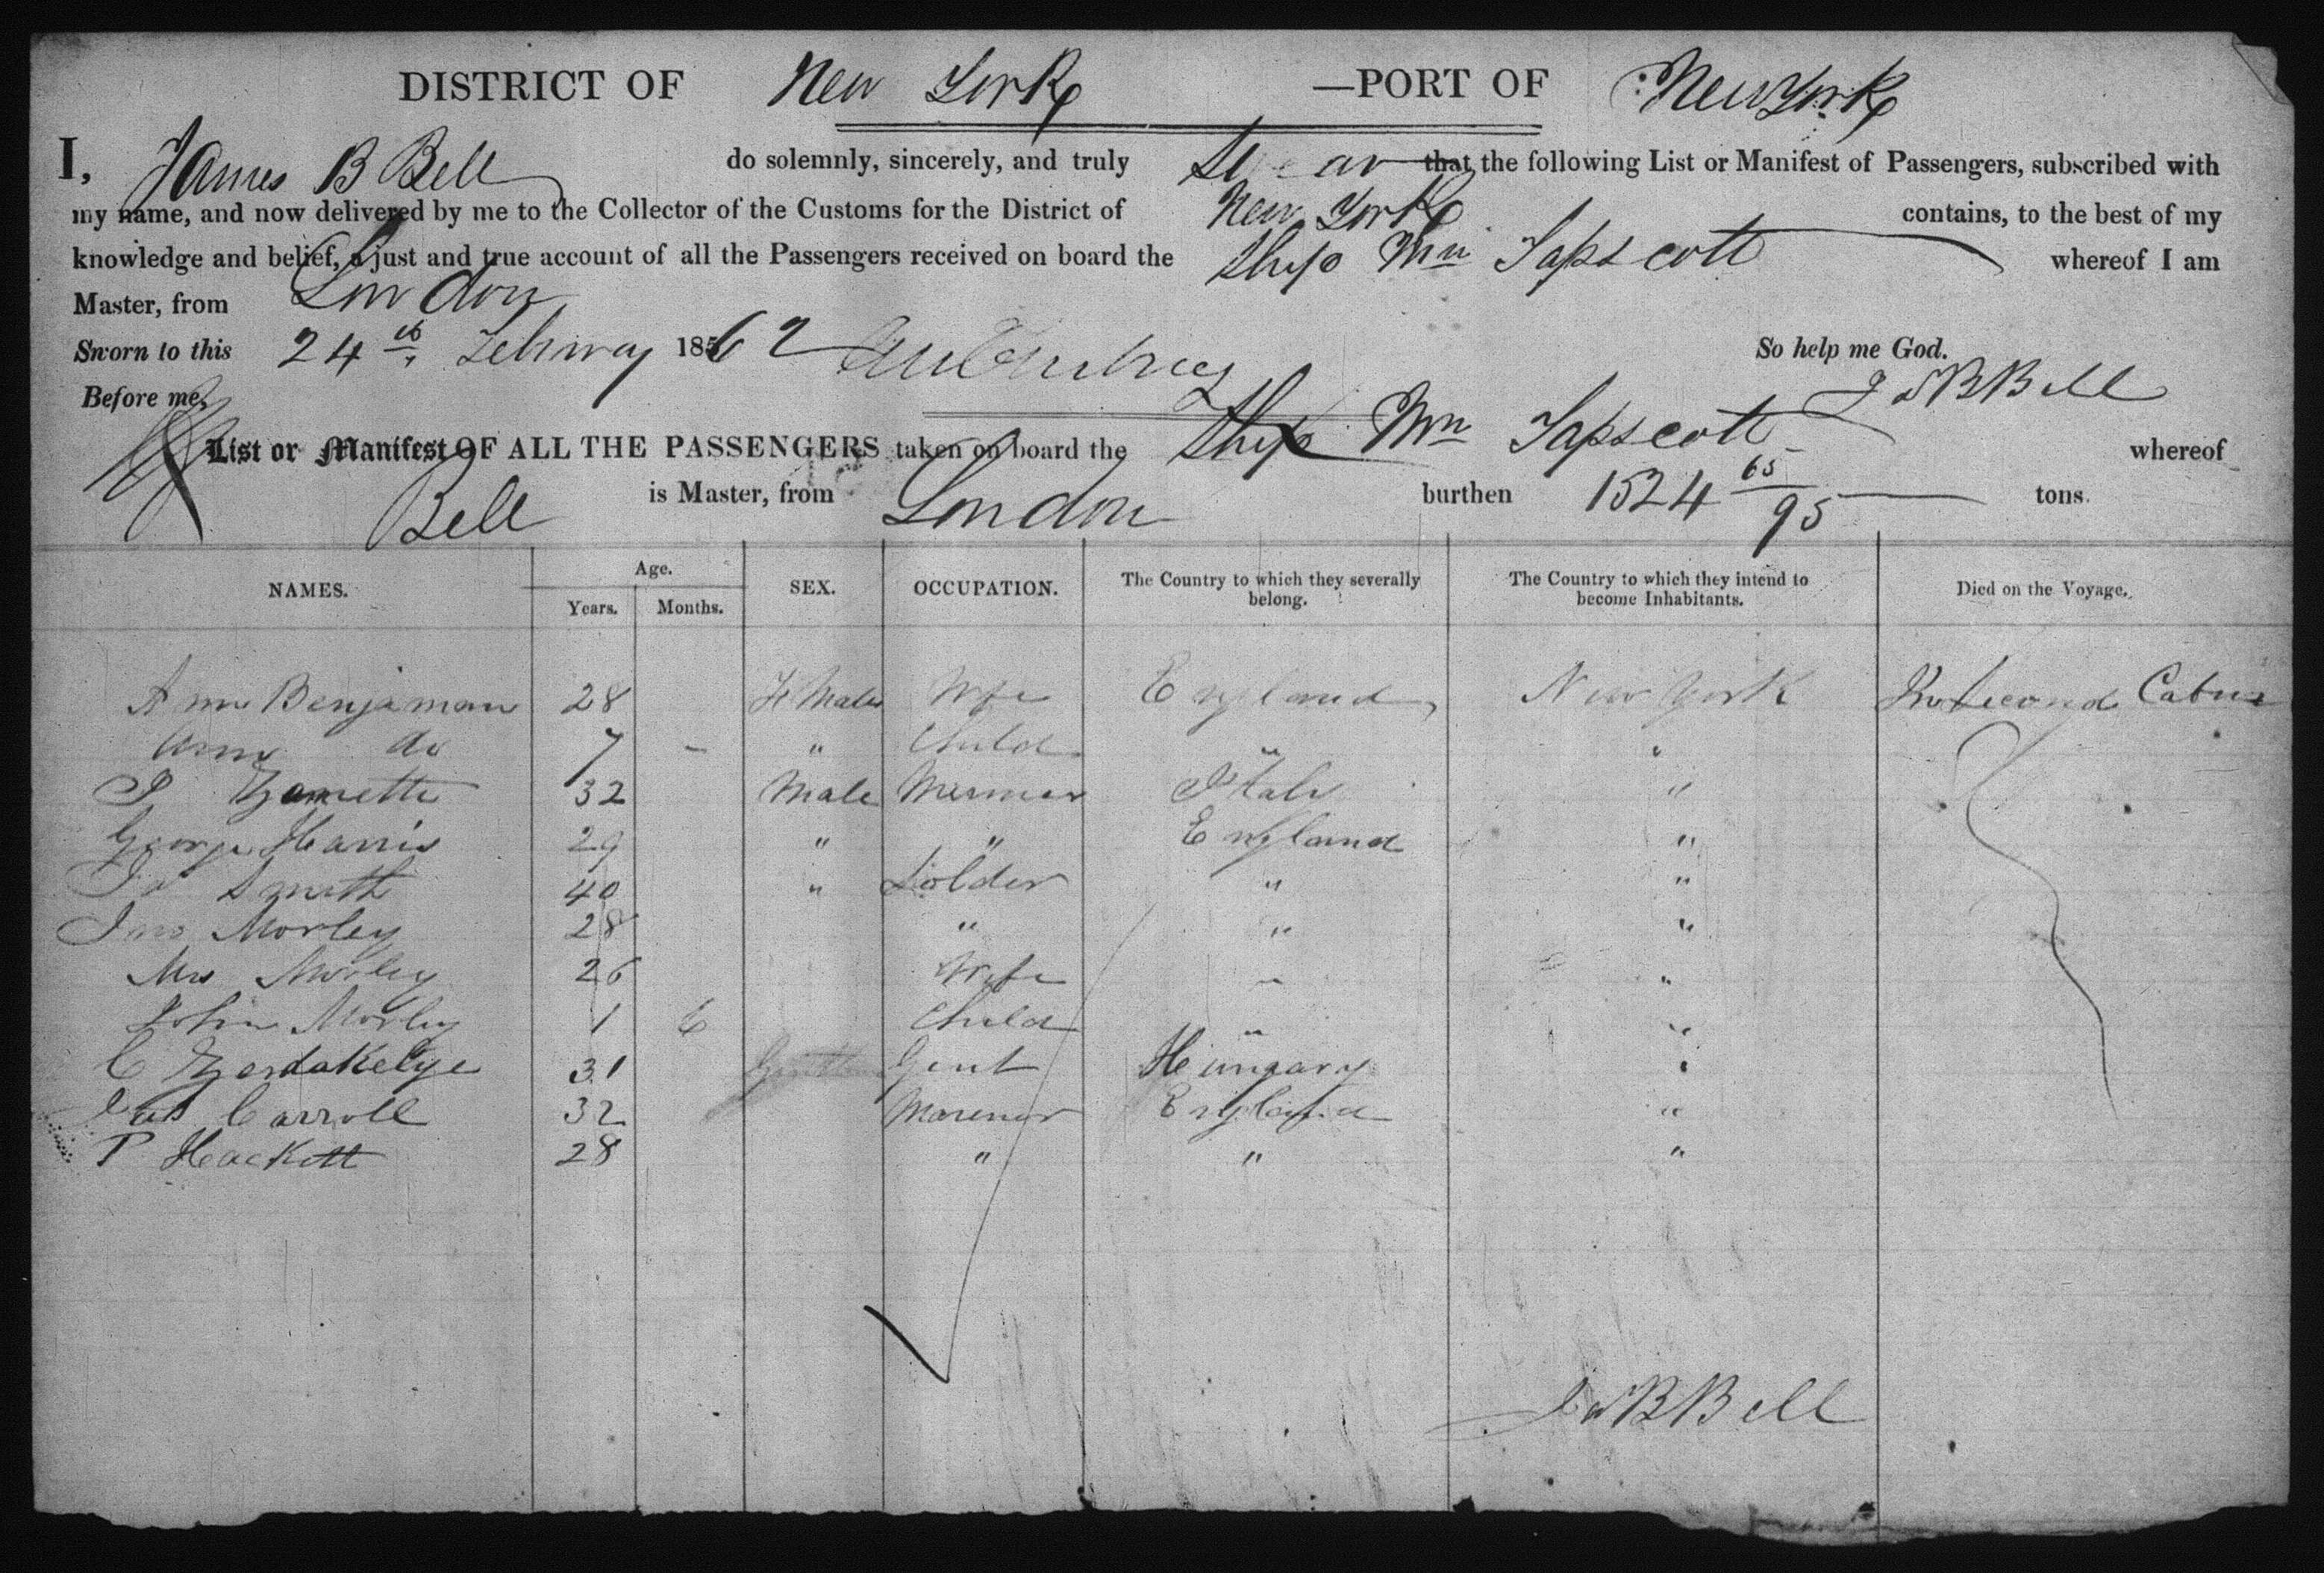 DISTRICT OF New York —PORT OF New York
I, James B Bell do solemnly, sincerely, and truly swear that the following List or Manifest of Passengers, subscribed with
my name, and now delivered by me to the Collector of the Customs for the District of New York contains, to the best of my
knowledge and belief, a just and true account of all the Passengers received on board the Ship Wm Tapscott whereof I am
Master, from London
Sworn to this 24th Febuary 1862 So help me God.
Before me, Js B Bell
List or Manifest OF ALL THE PASSENGERS taken on board the Ship Wm Tapscott whereof
Bell is Master, from London burthen 1524 65/95 tons.
NAMES. Age. Years. Months. SEX. OCCUPATION. The Country to which they severally belong. The Country to which they intend to become Inhabitants. Died on the Voyage.
Ann Benjaman 28 Fe Male Wife England New York In Second Cabin
Ann do 7 - " Child " "
32 Male Italy "
George Harris 29 " " England "
Js Smith 40 " Solder " "
Jno Morley 28 " " "
Mrs Morley 26 Wife " "
John Morley 1 6 Child " "
C 31 Gent Hungary "
Jas Carroll 32 Marener England "
P Hackett 28 " " "
Js B Bell